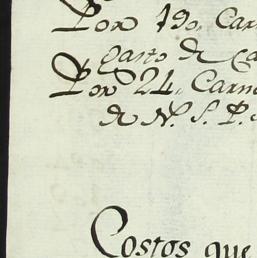 Por 190, Car
gasto de Ca
Por 24,, Carne
de N. S. P.
Costos que